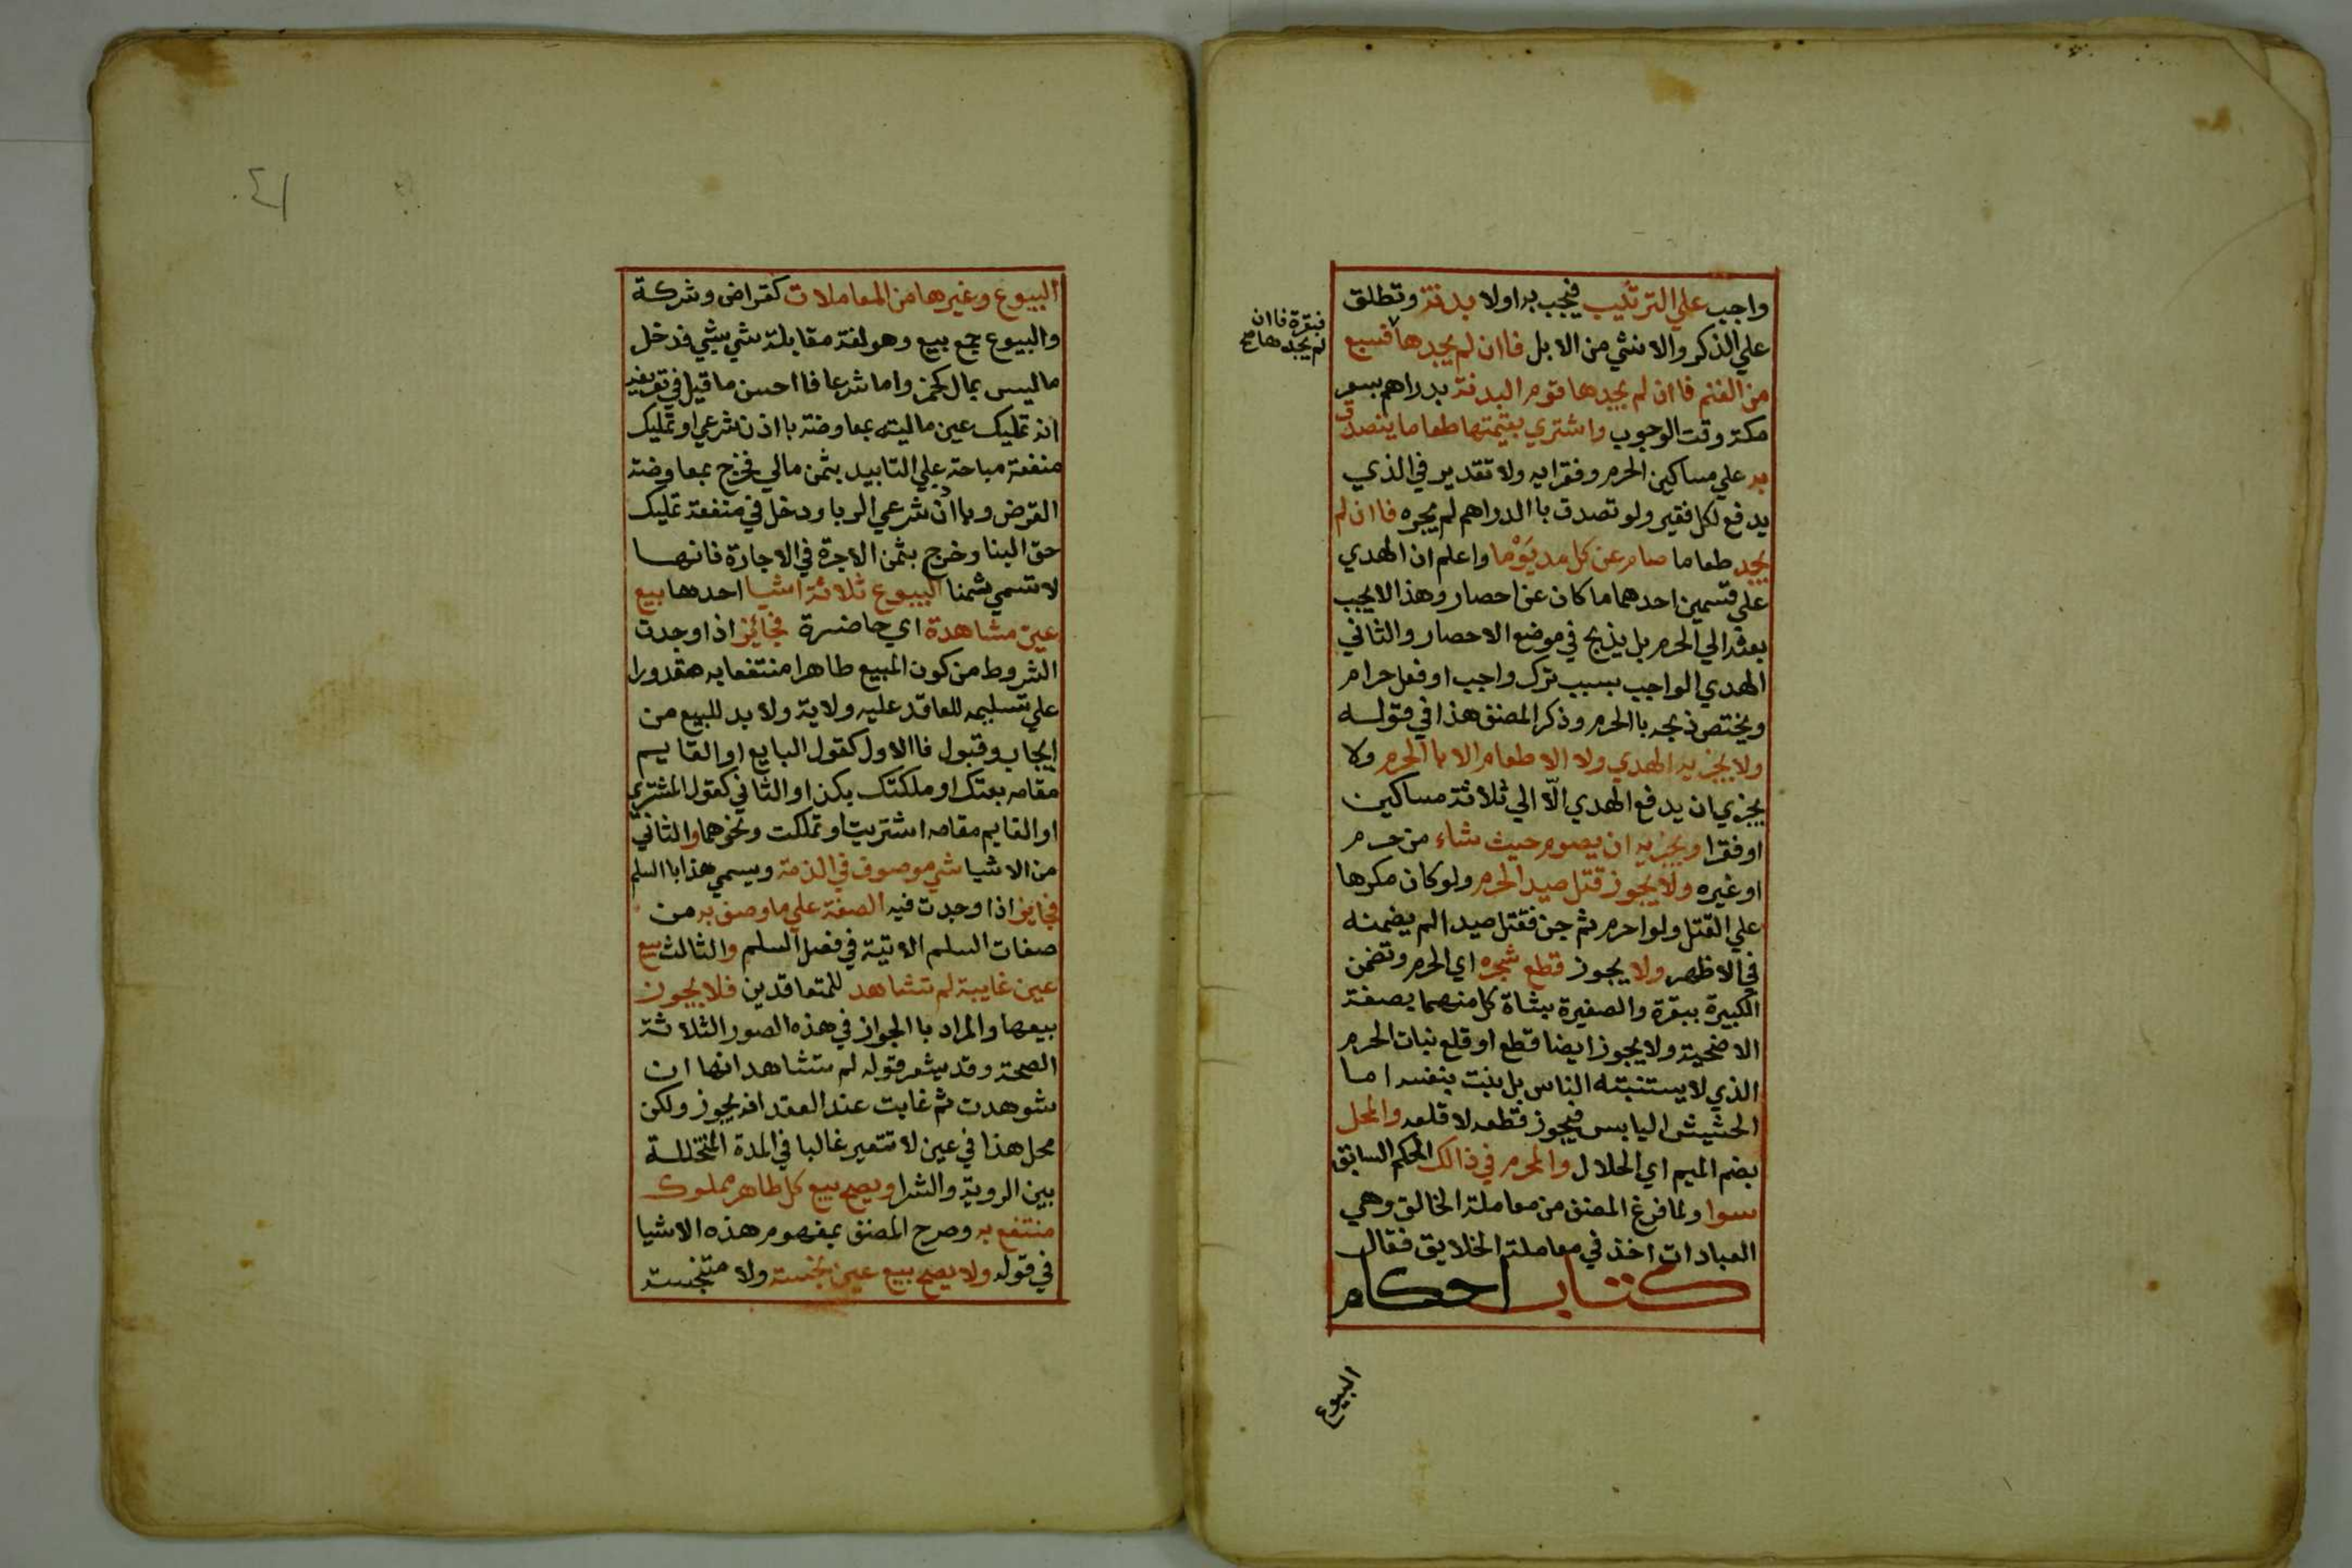 واجب علي الترتيب فيجب به اولا بدنة وتطلق
علي الذكر والانثي من الابل فاان لم يجدها فسبع
فبقرة فاان
لم يجدها صح
من الغنم فاان لم يجدها قوم البدنة بدراهم بسعر
مكة وقت الوجوب واشتري بقيمتها طعاما يتصدق
به علي مساكين الحرم وفقرايه ولا تقدير في الذي
يدفع لكل فقير ولو تصدق باالدراهم لم يجزه فاان لم
يجد طعاما صام عن كل مد يَوْما واعلم ان الهدي
علي قسمين احدهما ما كان عن احصار وهذا لا يجب
بعثه الي الحرم بل يذبح في موضع الاحصار والثاني
الهدي الواجب بسبب ترك واجب او فعل حرام
ويختص ذبحه باالحرم وذكر المصنف هذا في قوله
ولا يجزيه الهدي ولا الاطعام الا باالحرم ولا
يجزي ان يدفع الهدي الّا الي ثلاثة مساكين
او فقرا ويجزيه ان يصوم حيث شاء من حرم
او غيره ولا يجوز قتل صيد الحرم ولو كان مكرها
علي القتل ولو احرم ثم جن فقتل صيدا لم يضمنه
في الاظهر ولا يجوز قطع شجره اي الحرم وتضمن
الكبيرة ببقرة والصغيرة بشاة كل منهما بصفة
الاضحية ولا يجوز ايضا قطع او قلع نبات الحرم
الذي لا يستنبته الناس بل ينبت بنفسه اما
الحشيش اليابس فيجوز قطعه لا قلعه والمحل
بضم الميم اي الحلال والمحرم في ذالك الحكم السابق
سوا ولما فرغ المصنف من معاملة الخالق وهي
العبادات اخذ في معاملة الخلايق فقال
كتاب احكام
البيوع
٤١
البيوع وغيرها من المعاملات كقراض وشركة
والبيوع جمع بيع وهو لغة مقابلة شي بشي فدخل
ما ليس بمال كخمر واما شرعا فااحسن ما قيل في تعريفه
انه تمليك عين مالية بمعاوضة بااذن شرعي او تمليك
منفعة مباحة علي التابيد بثمن مالي فخرج بمعاوضة
القرض وبااذن شرعي الربا ودخل في منفعة تمليك
حق البنا وخرج بثمن الاجرة في الاجارة فانها
لا تسمي ثمنا البيوع ثلاثة اشيا احدها بيع
عين مشاهدة اي حاضرة فجائز اذا وجدت
الشروط من كون المبيع طاهرا منتفعا به مقدورا
علي تسليمه للعاقد عليه ولاية ولا بد للبيع من
ايجاب وقبول فاالاول كقول البايع او القايم
مقامه بعتك او ملكتك بكذا والثاني كقول المشتري
او القايم مقامه اشتريت او تملكت ونحوهما والثاني
من الاشيا شي موصوف في الذمة ويسمي هذا باالسلم
فجايز اذا وجدت فيه الصفة علي ما وصف به من
صفات السلم الاتية في فصل السلم والثالث بيع
عين غايبة لم تشاهد للمتعاقدين فلا يجوز
بيعها والمراد باالجواز في هذه الصور الثلاثة
الصحة وقد يشعر قوله لم تشاهد انها ان
شوهدت ثم غابت عند العقد انه يجوز ولكن
محل هذا في عين لا تتغير غالبا في المدة المتخللة
بين الروية والشرا ويصح بيع كل طاهر مملوك
منتفع به وصرح المصنف بمفهوم هذه الاشيا
في قوله ولا يصح بيع عين نجسة ولا متنجسة